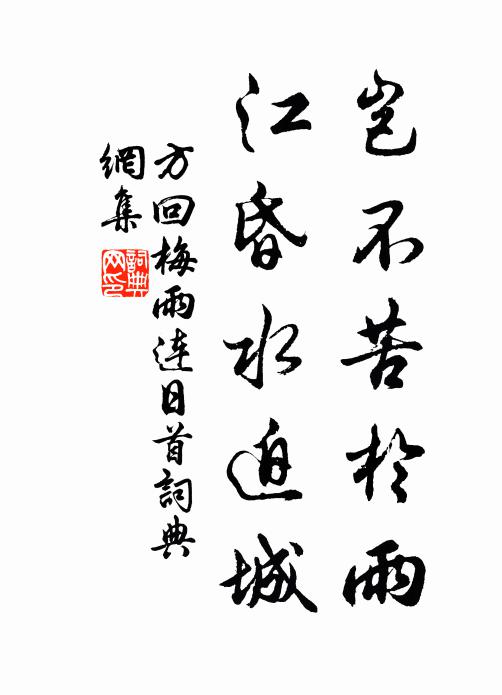 豈不苦於雨
江昏水迫城
方回梅雨連日首詞典
網集
詞典
网印